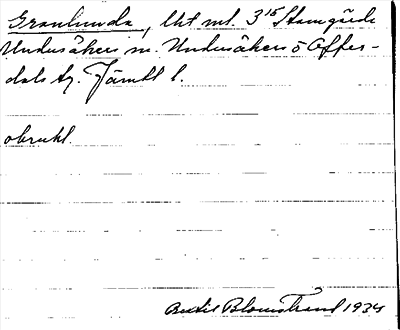 Granlunda, lht nl. 3¹⁵ Stamgärde
Undersåkers sn. Undersåkers o Offer-
dals tg. Jämtl l.
obrukl.
Bertil Blomstrand 1934